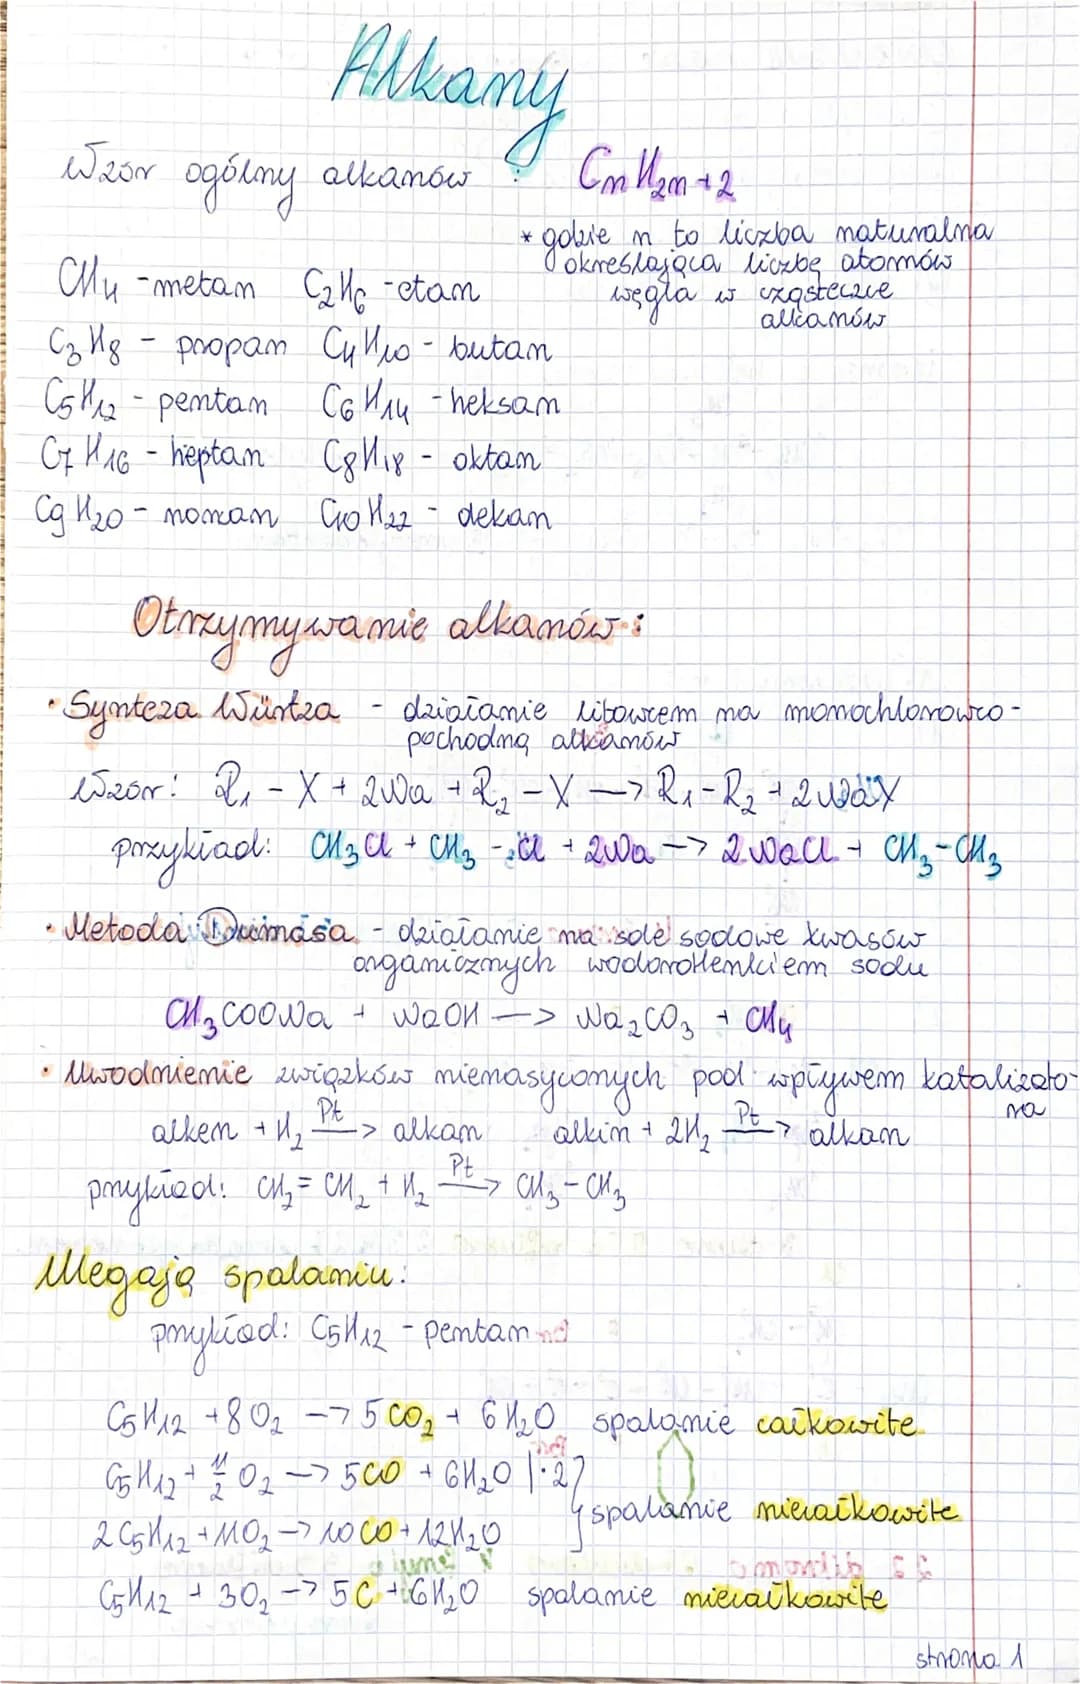 Alkany
Wzór ogólny alkanów : CnH2n+2
* gdzie n to liczba naturalna
określająca liczbę atomów
węgla w cząsteczce
alkanów
CH4 - metan C2H6 - etan
C3H8 - propan C4H10 - butan
C5H12 - pentan C6H14 - heksan
C7H16 - heptan C8H18 - oktan
C9H20 - nonan C10H22 - dekan
Otrzymywanie alkanów:
• Synteza Würtza - działanie litowcem na monochlorowco-
pochodną alkanów
Wzór: R1 - X + 2Na + R2 - X → R1 - R2 + 2NaX
przykład: CH3Cl + CH3 - Cl + 2Na → 2NaCl + CH3 - CH3
• Metoda Dumasa - działanie na sole sodowe kwasów
organicznych wodorotlenkiem sodu
CH3COONa + NaOH → Na2CO3 + CH4
• Uwodnienie związków nienasyconych pod wpływem katalizato-
ra
alken + H2 Pt→ alkan alkin + 2H2 Pt→ alkan
przykład: CH2 = CH2 + H2 Pt→ CH3 - CH3
Ulegają spalaniu:
przykład: C5H12 - pentan
C5H12 + 8O2 → 5CO2 + 6H2O spalanie całkowite
C5H12 + 11/2 O2 → 5CO + 6H2O | ·2
spalanie niecałkowite
2C5H12 + 11O2 → 10CO + 12H2O
C5H12 + 3O2 → 5C + 6H2O spalanie niecałkowite
strona 1